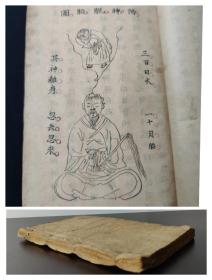 陽神脫胎圖
三百日火
一十月胎
其神離身
忽去忽來